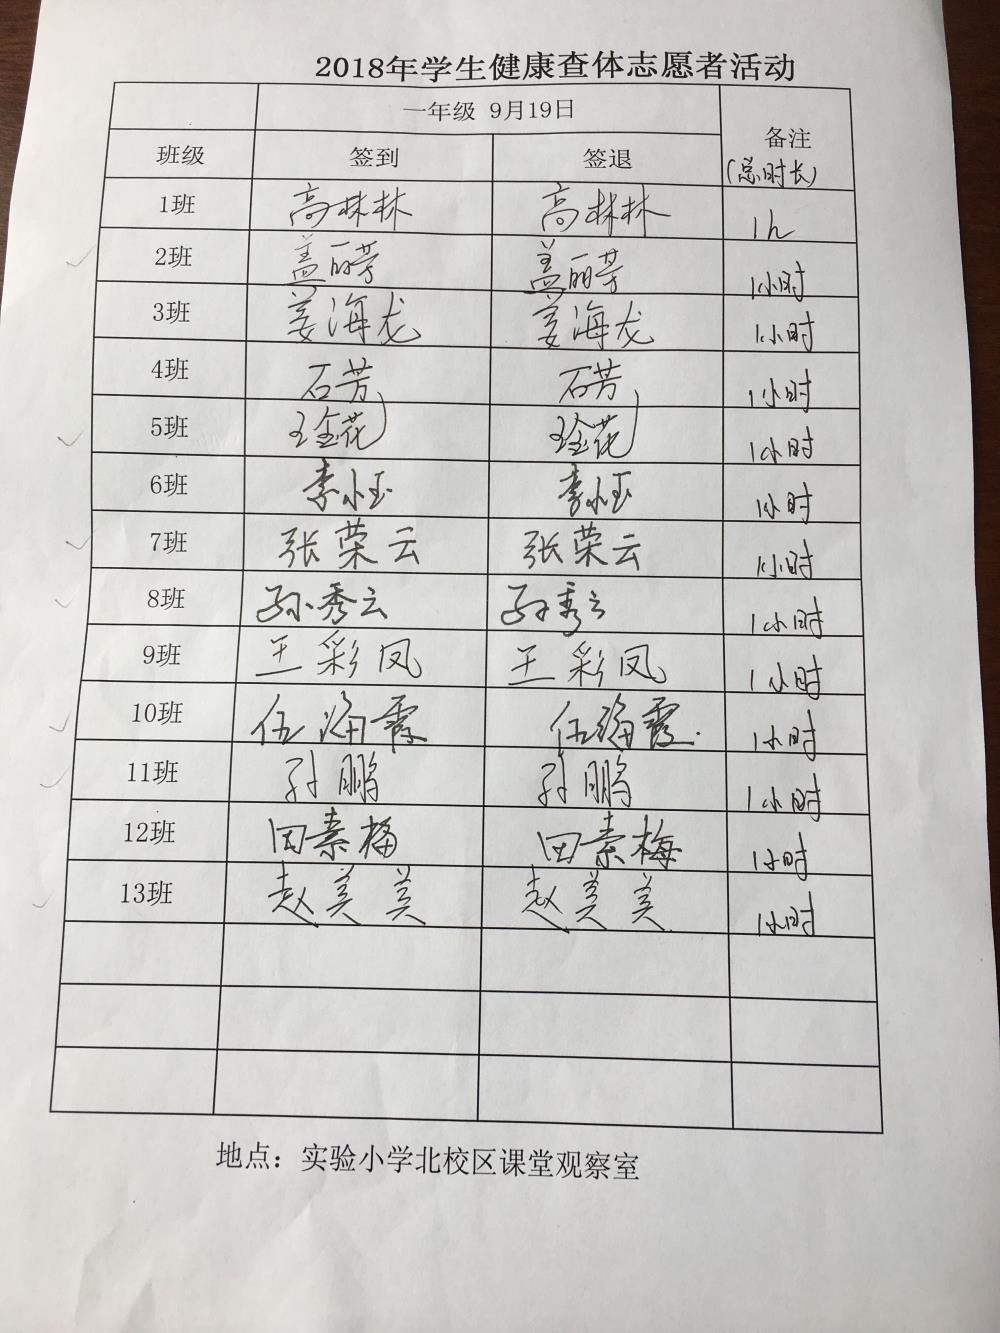 2018年学生健康查体志愿者活动
一年级 9月19日 备注
班级 签到 签退 (总时长)
1班 高林林 高林林 1h
2班 盖丽芳 盖丽芳 1小时
3班 姜海龙 姜海龙 1小时
4班 石芳 石芳 1小时
5班 王金花 王金花 1小时
6班 李小玉 李小玉 1小时
7班 张荣云 张荣云 1小时
8班 孙秀云 孙秀云 1小时
9班 王彩凤 王彩凤 1小时
10班 伍海霞 伍海霞 1小时
11班 孙鹏 孙鹏 1小时
12班 田素梅 田素梅 1小时
13班 赵美美 赵美美 1小时
地点：实验小学北校区课堂观察室